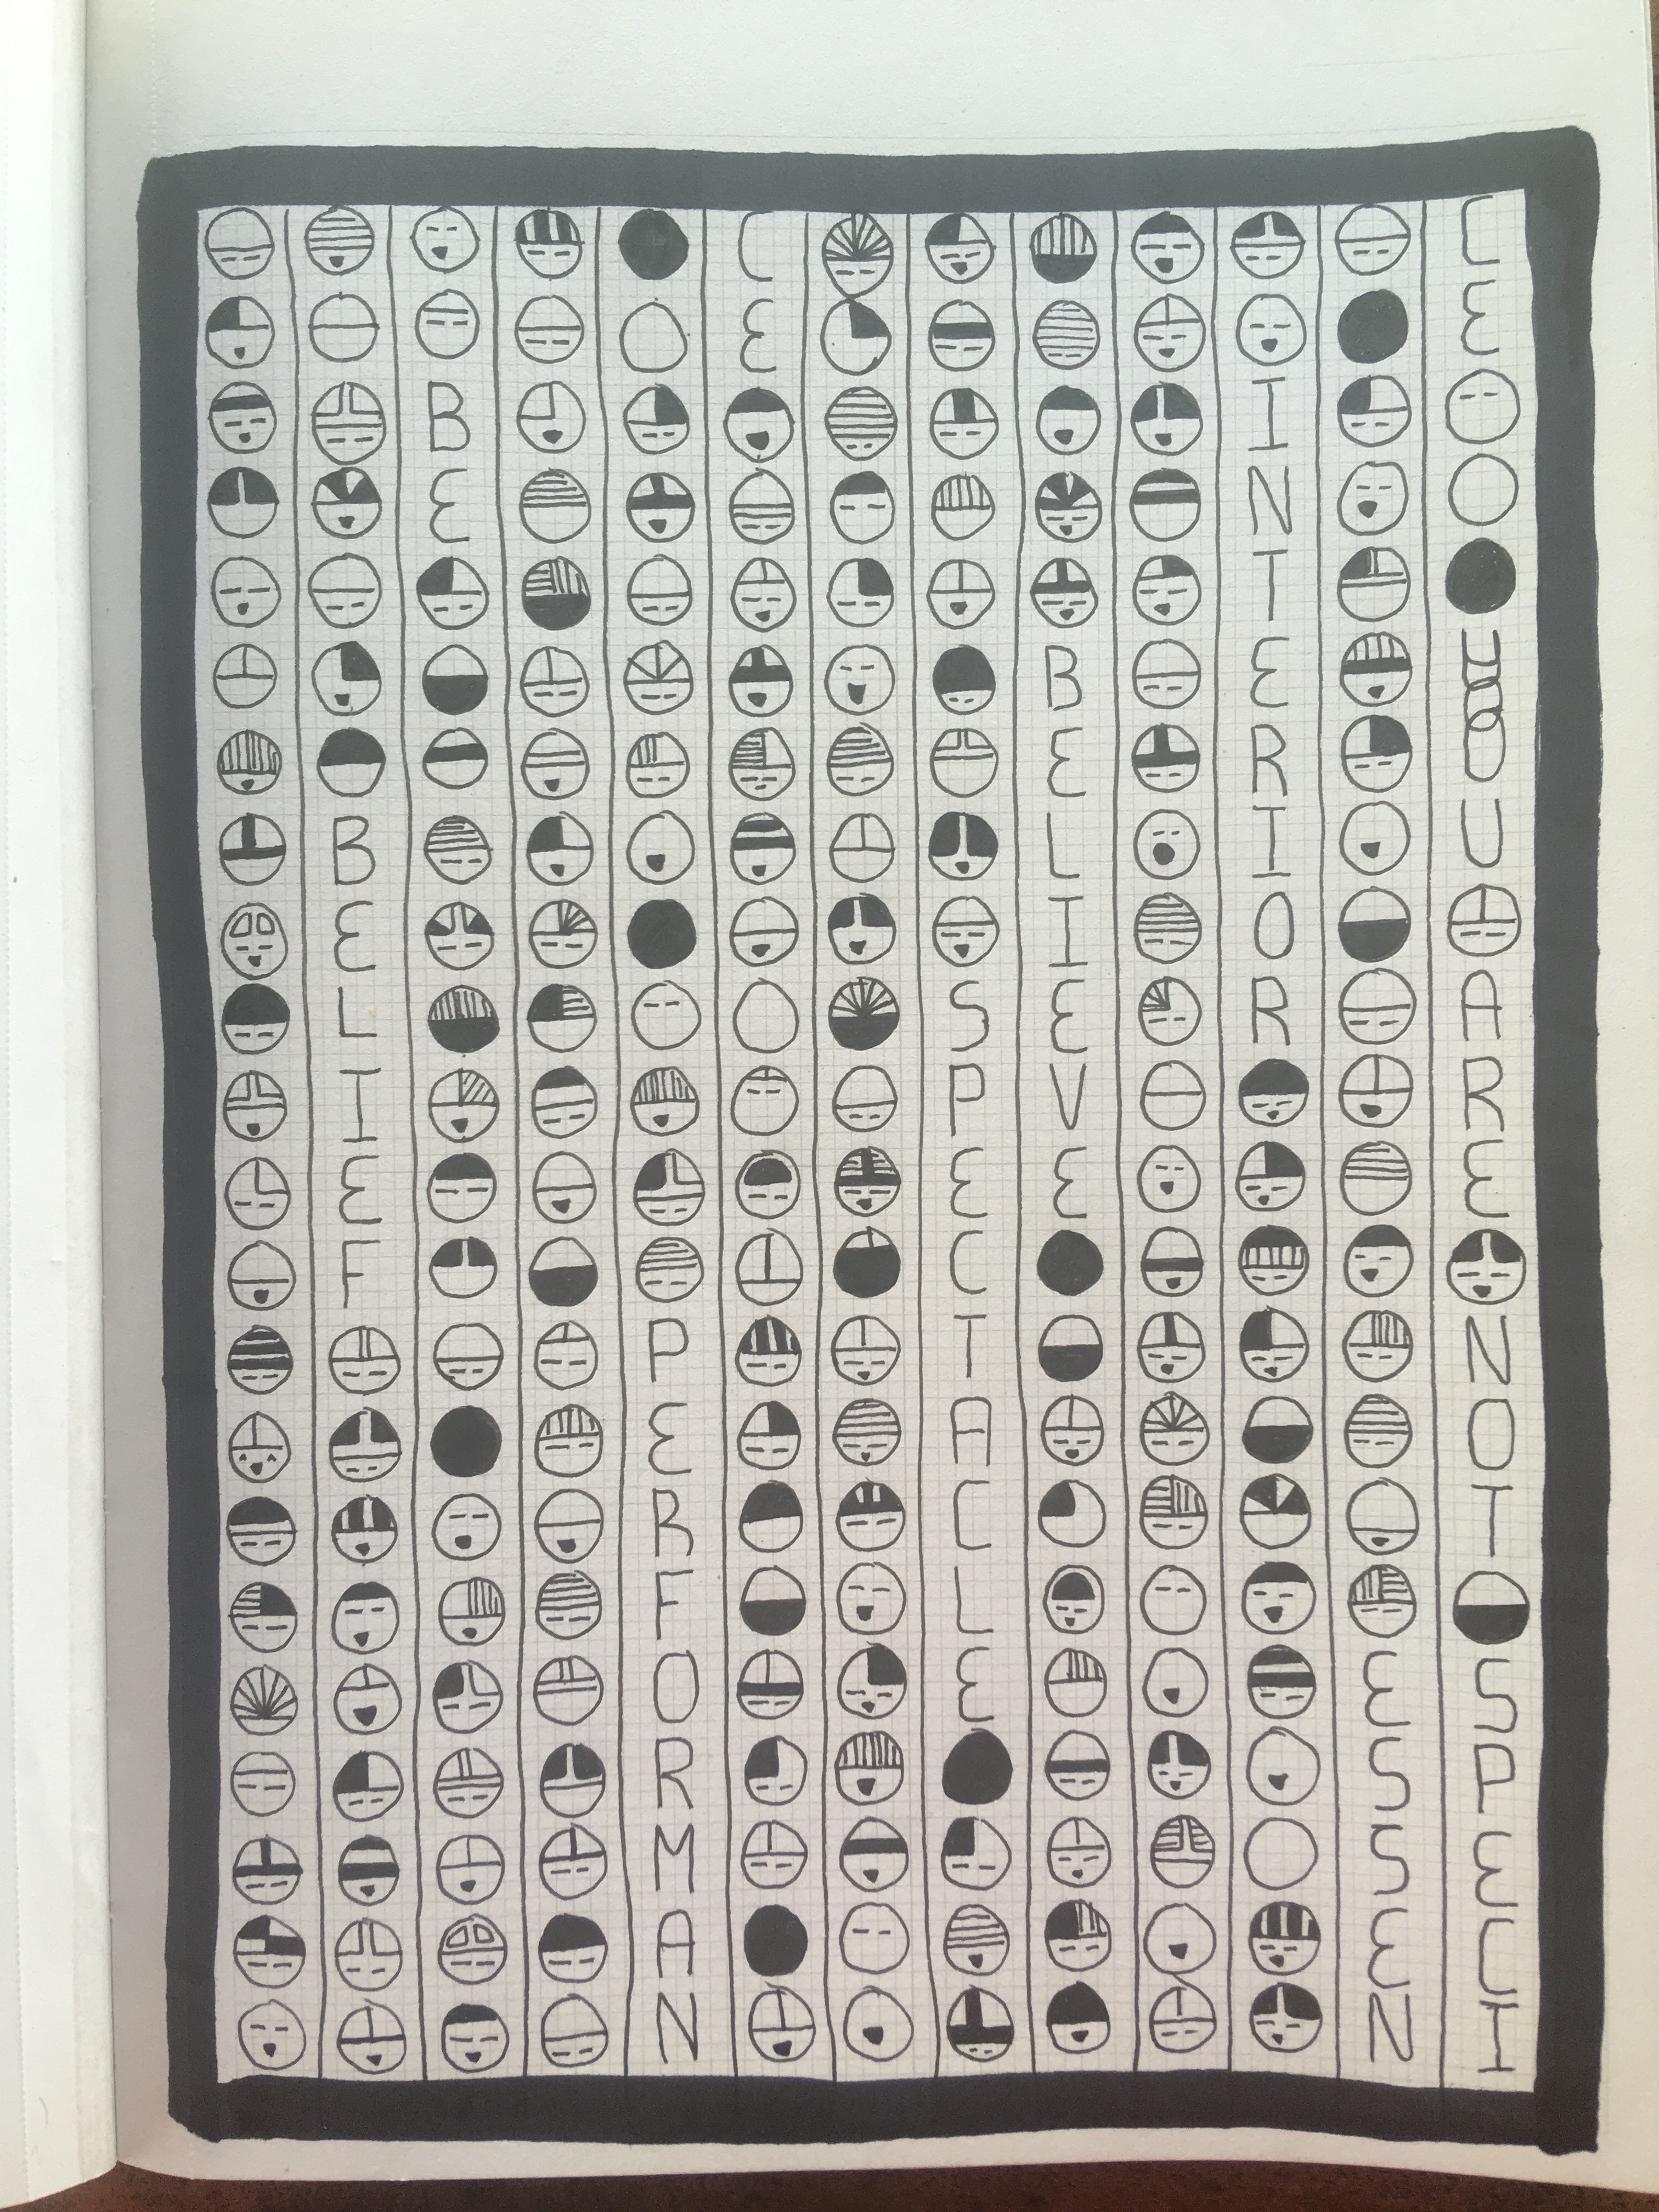 BELIEF
BE
PERFORMAN
CE
SPECTACLE
BELIEVE
INTERIOR
ESSEN
CE
ARE
NOT